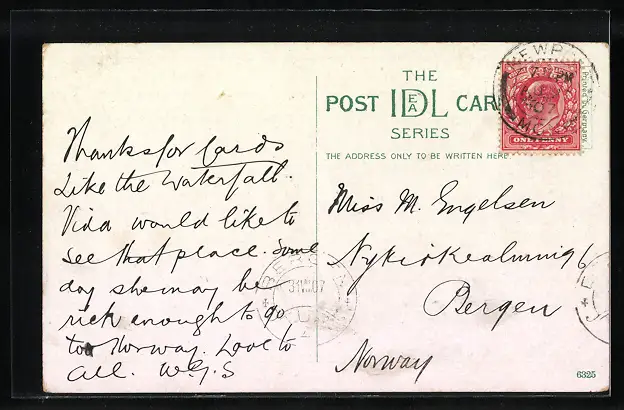 THE
POST IDEAL CARD
SERIES
THE ADDRESS ONLY TO BE WRITTEN HERE
Thanks for Cards
Like the Waterfall.
Vida would like to
see that place. Some
day she may be
rich enough to go
to Norway. Love to
all. W.G.S
Miss M. Engelsen
6
Bergen
Norway
NEWP
ONE PENNY
Printed in Germany
BERGEN
31 VII 07
6325